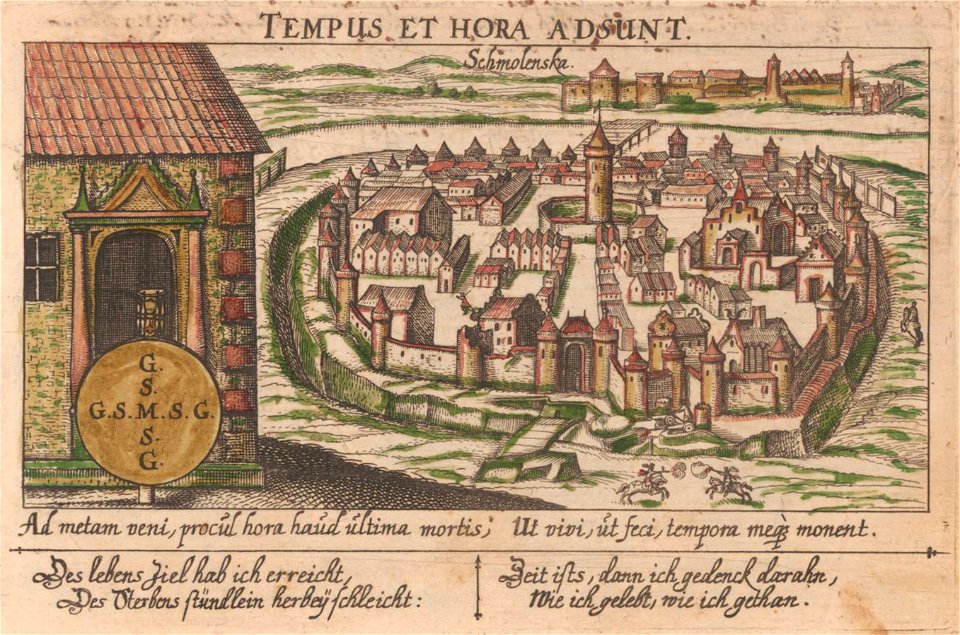 TEMPUS ET HORA ADSUNT.
Schmolenska.
G.
S.
G.S.M.S.G.
S.
G.
Ad metam veni, procůl hora haůd ůltima mortis; Ut vivi, ůt feci, tempora meqꝫ monent.
Des lebens ziel hab ich erreicht,
Des Sterbens ſtůndlein herbey ſchleicht:
Zeit iſts, dann ich gedenck darahn,
Wie ich gelebt, wie ich gethan.